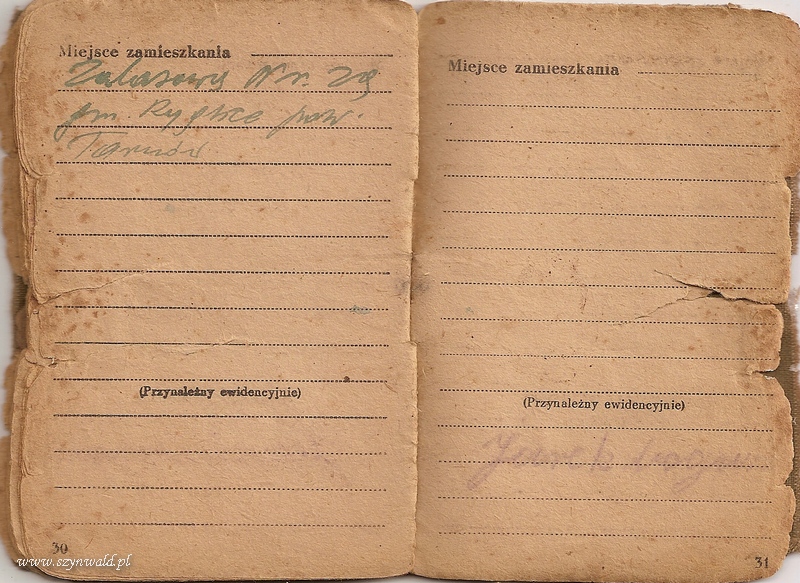 Miejsce zamieszkania
Zalasowa Nr. 29
gm. Ryglice pow.
Tarnów
(Przynależny ewidencyjnie)
30
www.szynwald.pl
Miejsce zamieszkania
(Przynależny ewidencyjnie)
31